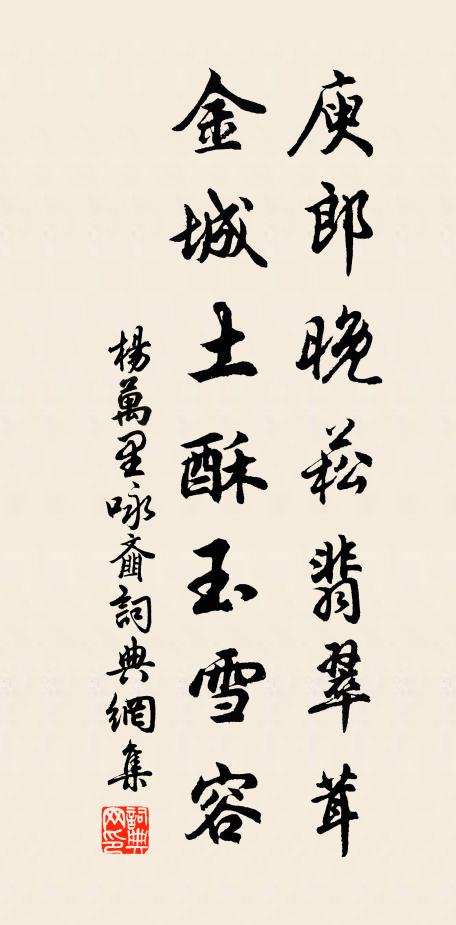 庾郎晚菘翡翠茸
金城土酥玉雪容
楊萬里咏齑詞典網集
詞典网印